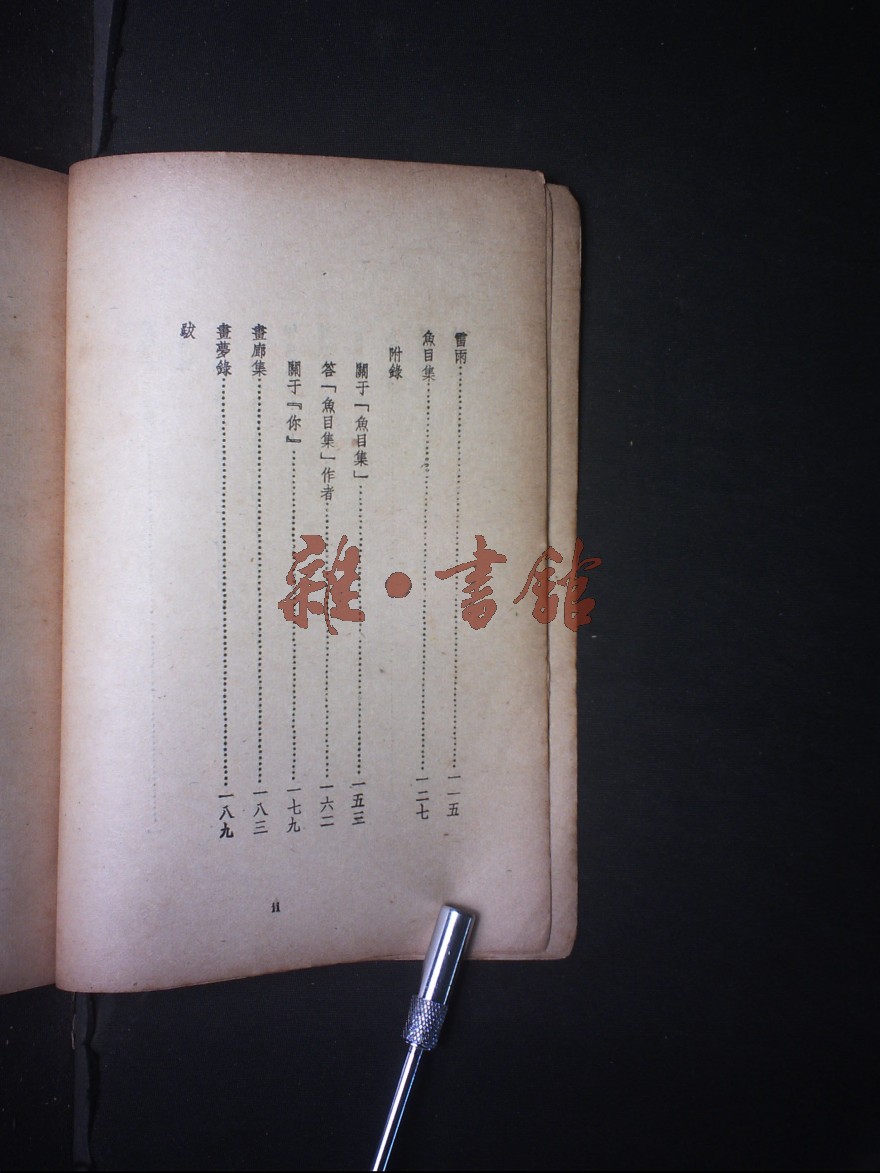 雷雨⋯⋯⋯⋯一一五
魚目集⋯⋯⋯⋯一二七
附錄
關于「魚目集」⋯⋯⋯⋯一五三
答「魚目集」作者⋯⋯⋯⋯一六二
關于『你』⋯⋯⋯⋯一七九
畫廊集⋯⋯⋯⋯一八三
畫夢錄⋯⋯⋯⋯一八九
跋
ii
雜·書館